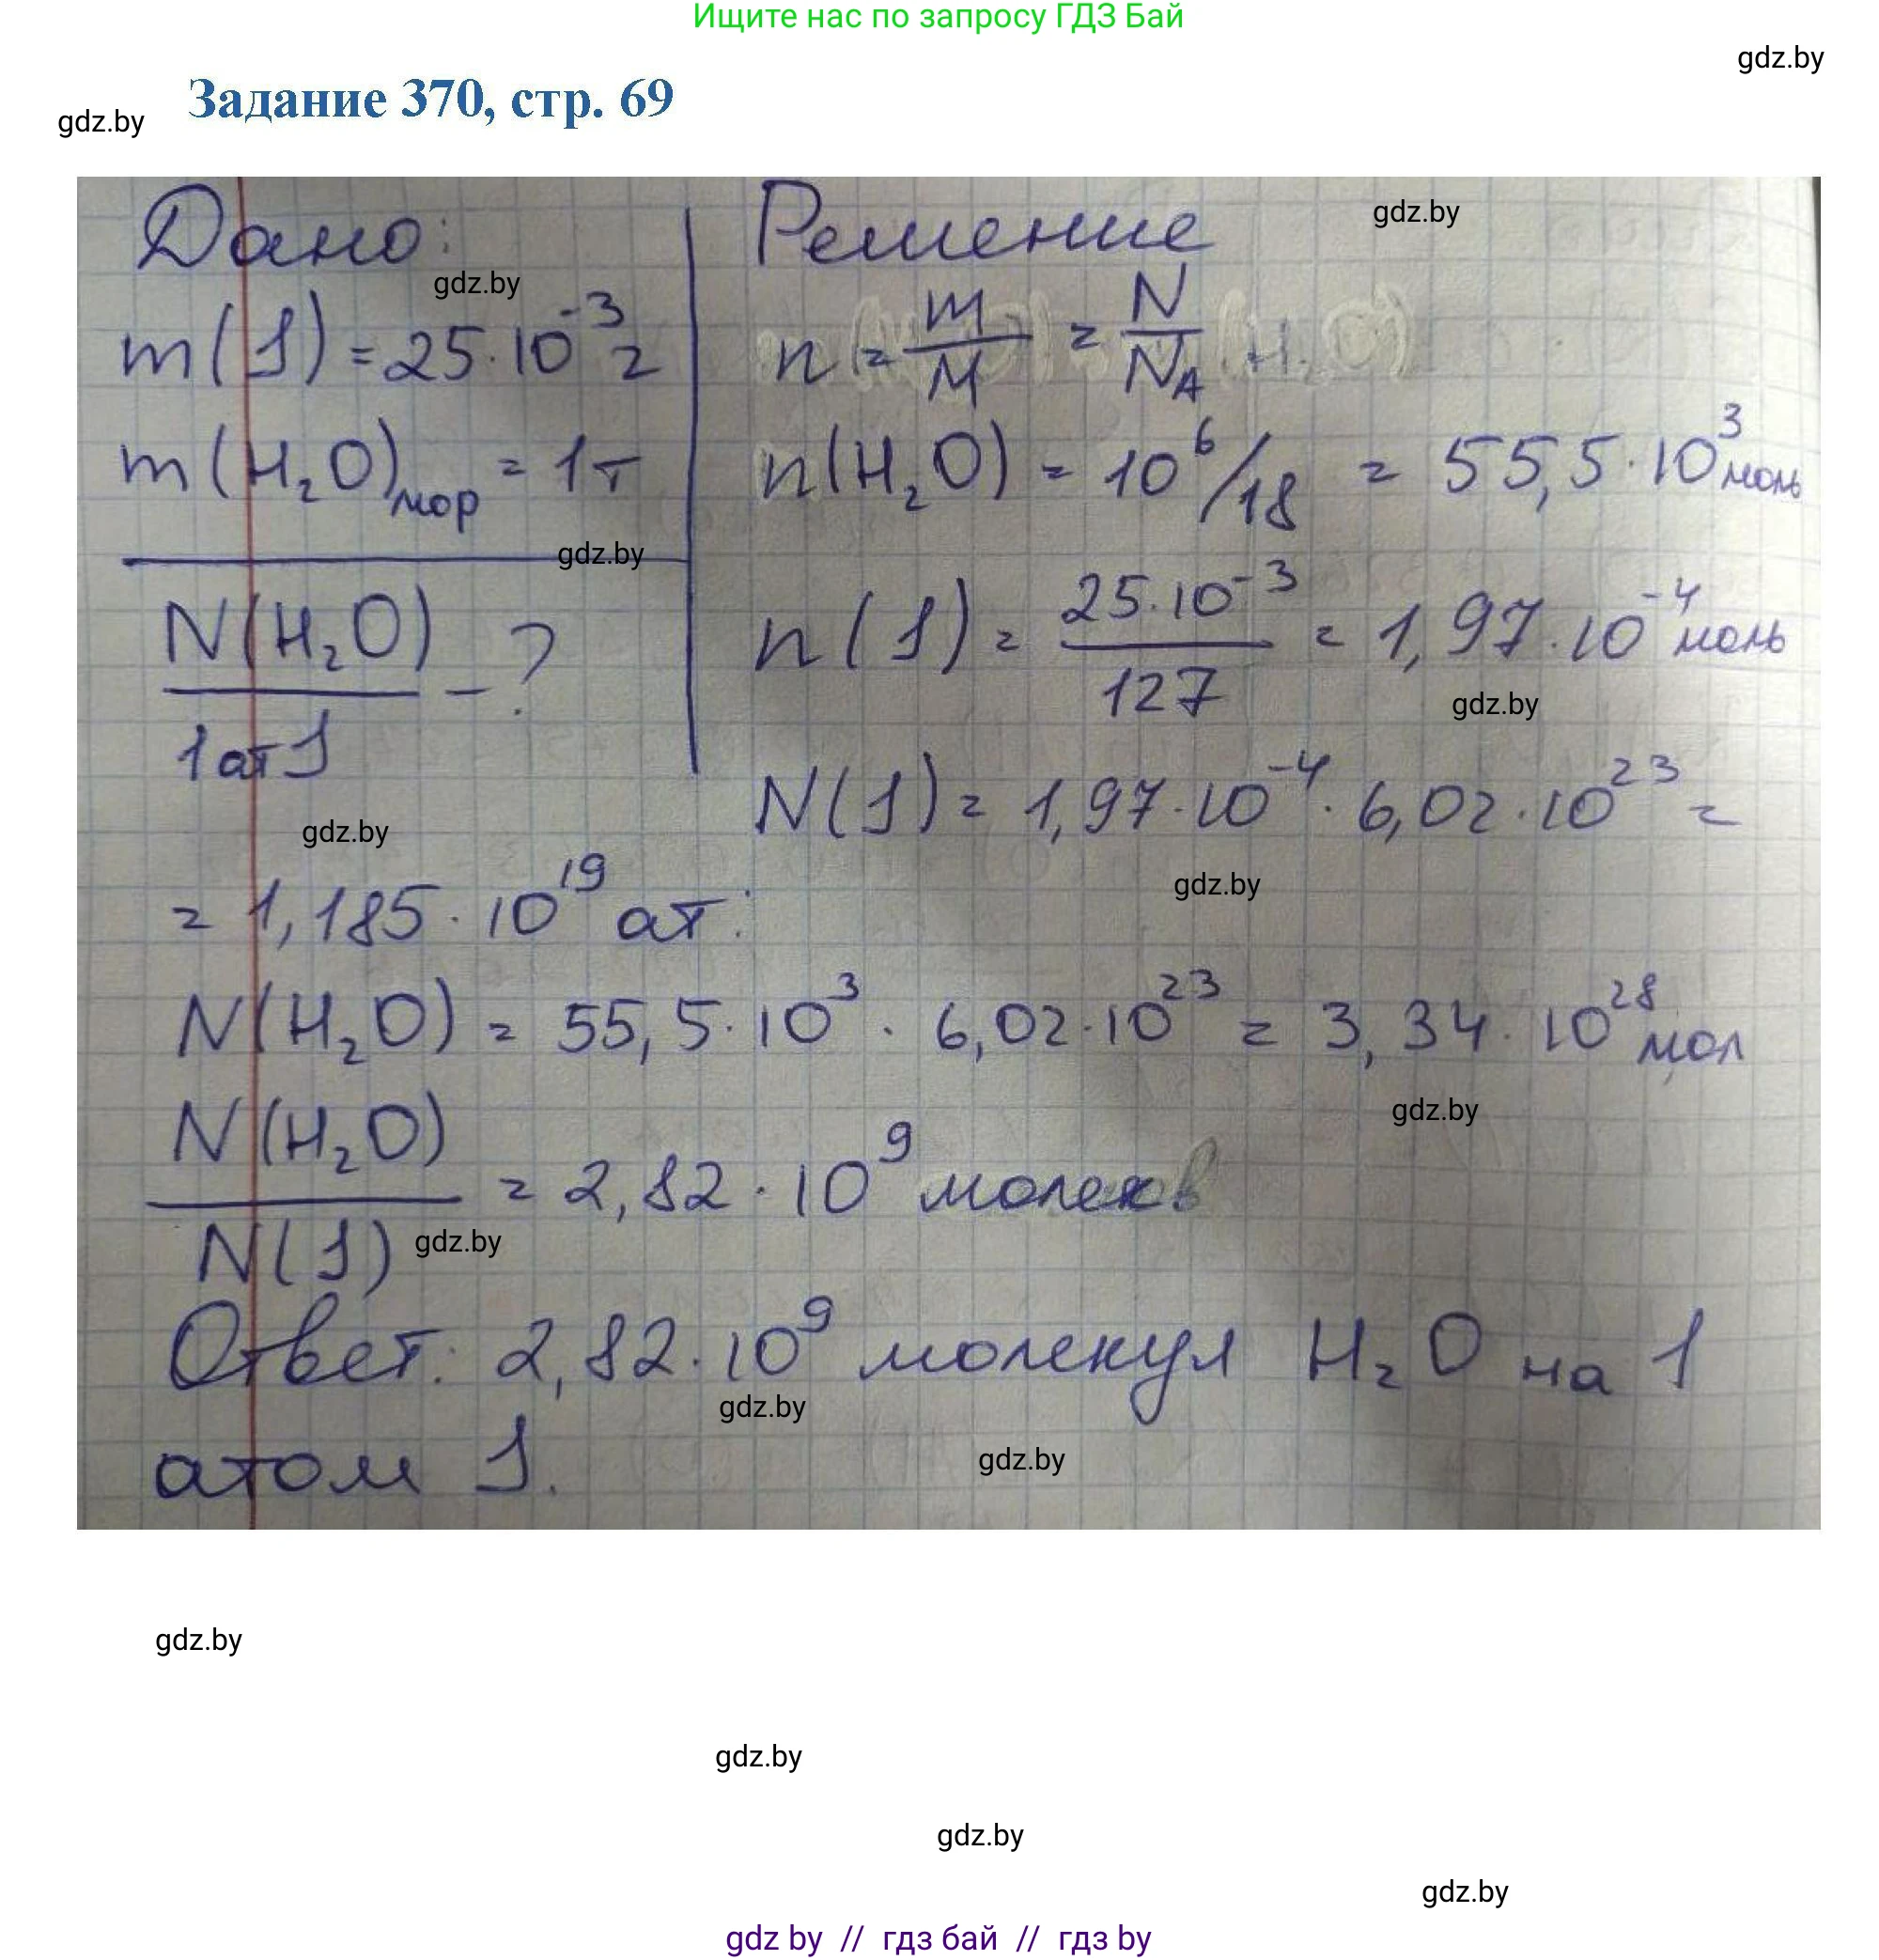 Ищите нас по запросу ГДЗ Бай
gdz.by
Задание 370, стр. 69
gdz.by
Дано:
m(J) = 25·10⁻³ г
m(H₂O)мор = 1т
N(H₂O)
1 ат J
- ?
Решение
n = m/M = N/Nₐ
n(H₂O) = 10⁶/18 = 55,5·10³ моль
n(J) = 25·10⁻³/127 = 1,97·10⁻⁴ моль
N(J) = 1,97·10⁻⁴ · 6,02·10²³ =
= 1,185·10¹⁹ ат.
N(H₂O) = 55,5·10³ · 6,02·10²³ = 3,34·10²⁸ мол
N(H₂O)/N(J) = 2,82·10⁹ молек
Ответ: 2,82·10⁹ молекул H₂O на 1
атом J.
gdz.by
gdz.by
gdz.by
gdz.by
gdz.by
gdz.by
gdz.by
gdz.by
gdz.by
gdz.by
gdz.by
gdz.by
gdz.by
gdz.by
gdz by // гдз бай // гдз by